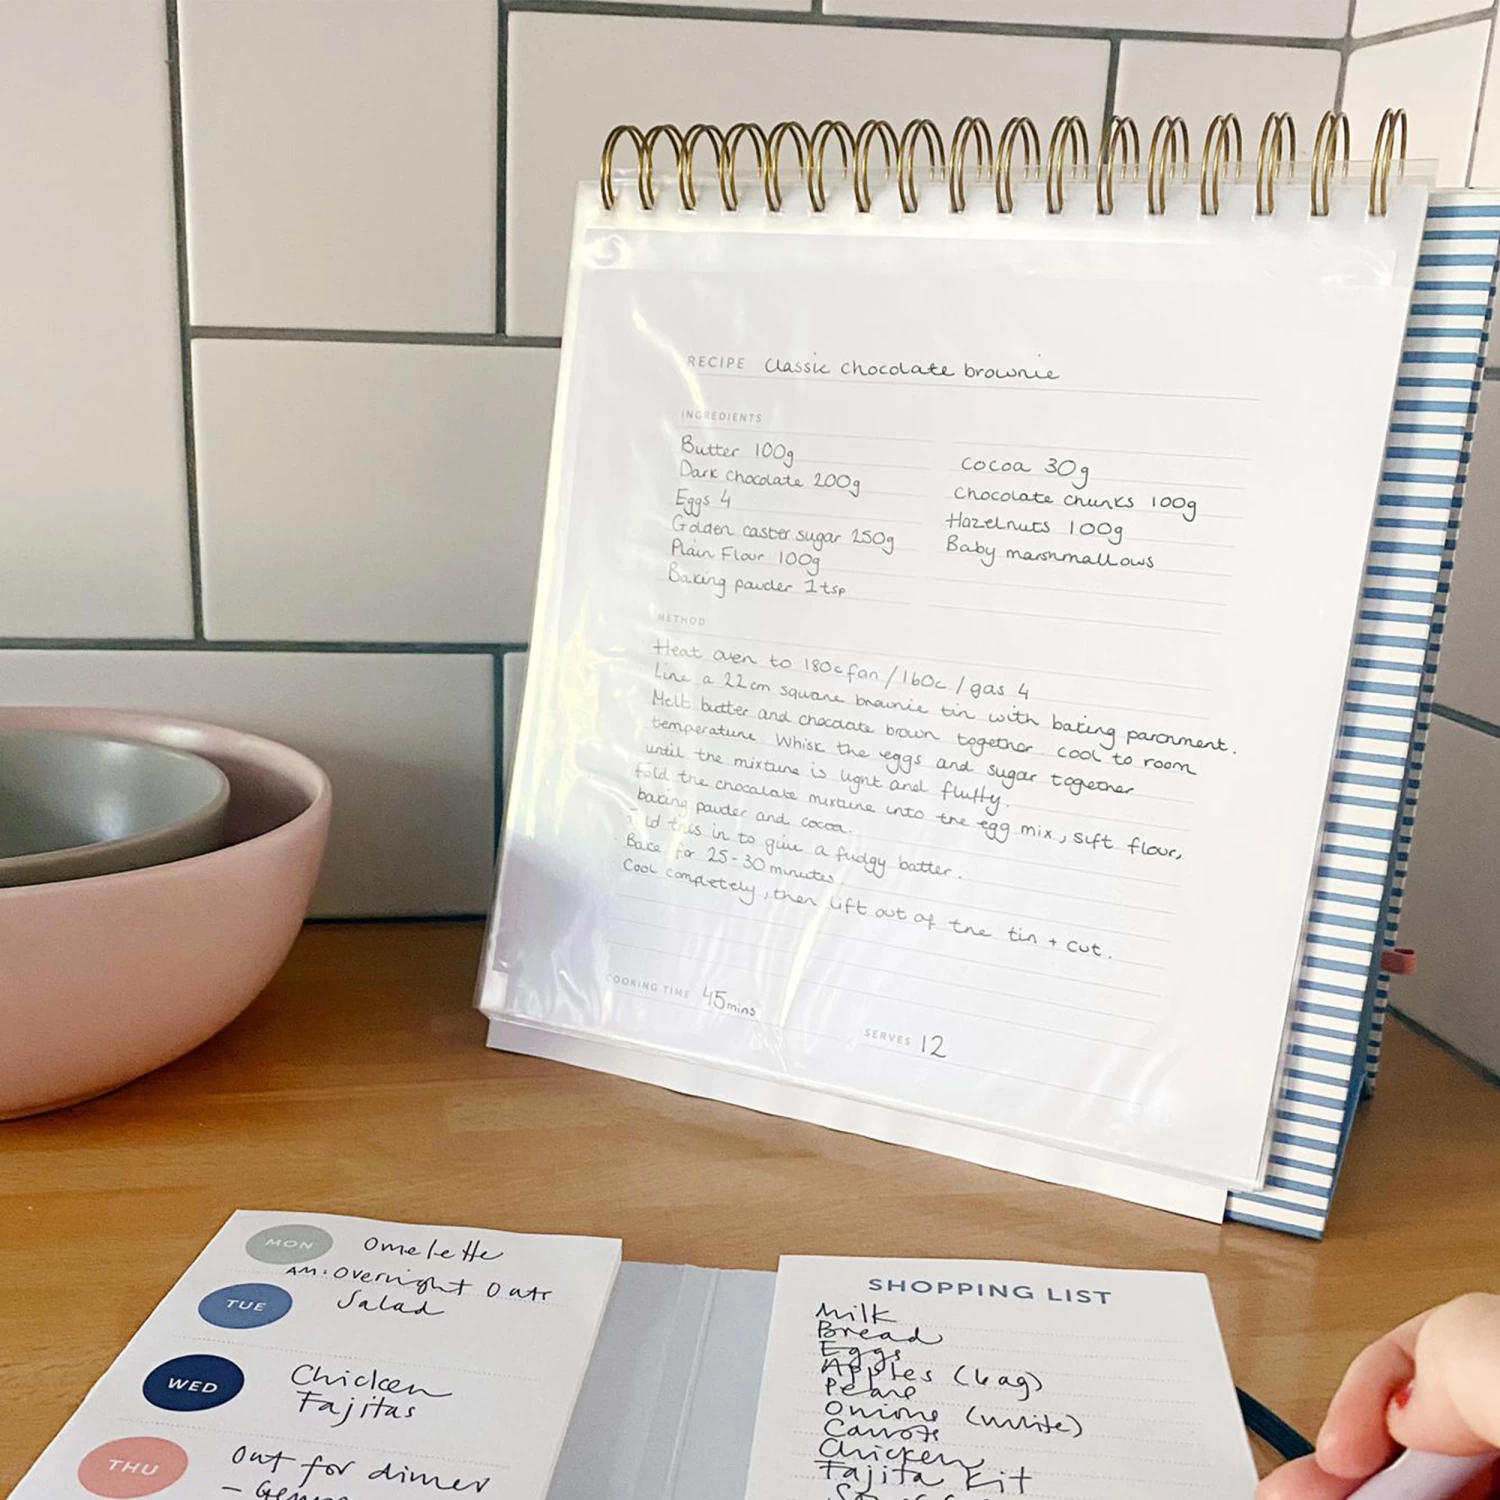 RECIPE Classic chocolate brownie
INGREDIENTS
Butter 100g
Dark chocolate 200g
Eggs 4
Golden caster sugar 250g
Plain Flour 100g
Baking powder 1tsp
Cocoa 30g
Chocolate chunks 100g
Hazelnuts 100g
Baby marshmallows
METHOD
Heat oven to 180c fan / 160c / gas 4
Line a 22cm square brownie tin with baking parchment.
Melt butter and chocolate brown together. Cool to room
temperature. Whisk the eggs and sugar together
until the mixture is light and fluffy.
Fold the chocolate mixture into the egg mix, sift flour,
baking powder and cocoa.
Fold this in to give a fudgy batter.
Bake for 25-30 minutes.
Cool completely, then lift out of the tin + cut.
COOKING TIME 45mins
SERVES 12
MON Omelette
AM: Overnight Oats
TUE Salad
WED Chicken
Fajitas
THU Out for dinner
SHOPPING LIST
Milk
Bread
Eggs
Apples (bag)
Pears
Onions (white)
Carrots
Chicken
Fajita Kit